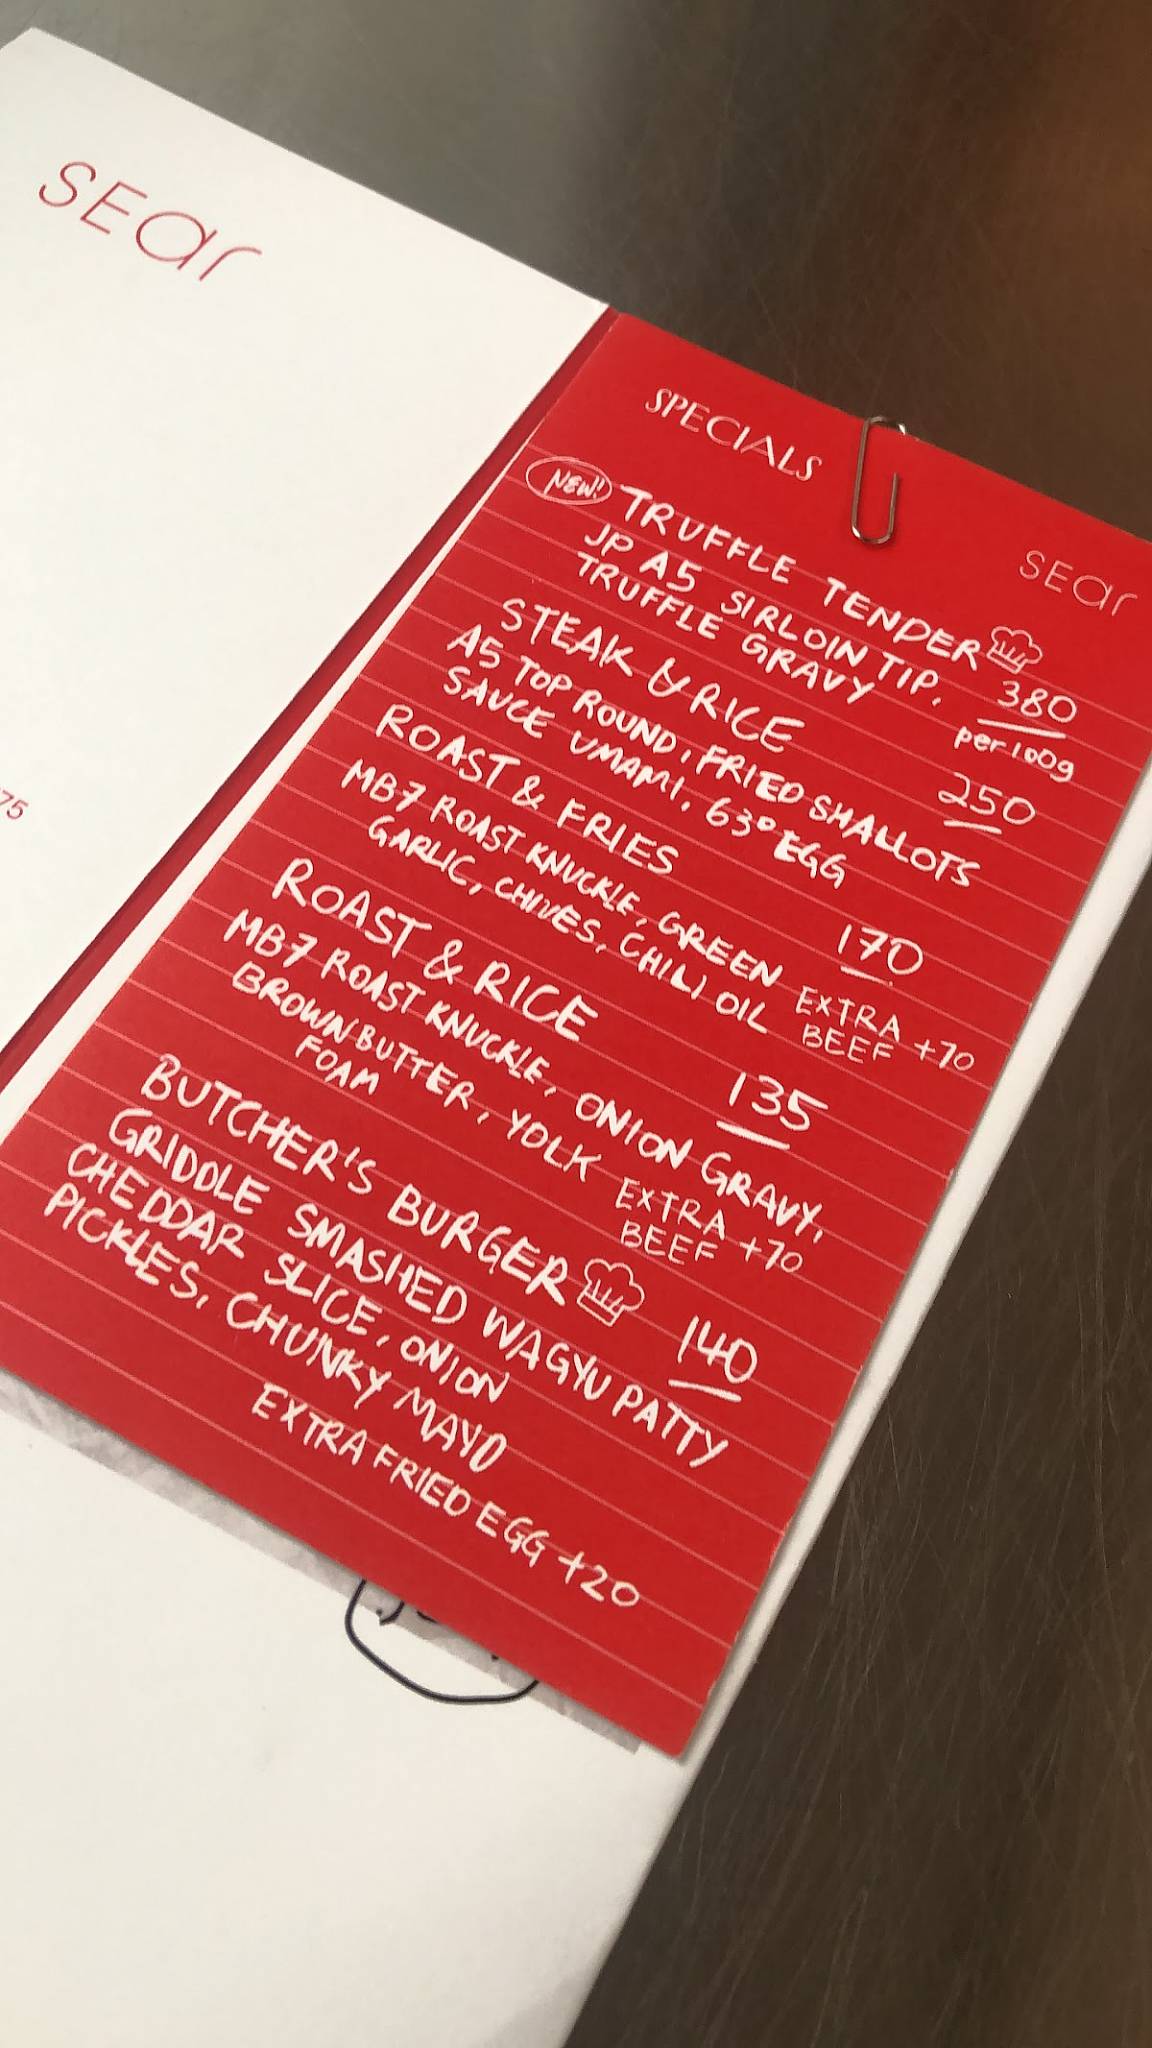 SEar
75
SPECIALS
SEar
NEW! TRUFFLE TENDER 380
JP A5 SIRLOIN TIP, per 100g
TRUFFLE GRAVY
STEAK & RICE 250
A5 TOP ROUND, FRIED SHALLOTS
SAUCE UMAMI, 63° EGG
ROAST & FRIES 170
MB7 ROAST KNUCKLE, GREEN EXTRA
GARLIC, CHIVES, CHILI OIL BEEF +70
ROAST & RICE 135
MB7 ROAST KNUCKLE, ONION GRAVY,
BROWN BUTTER, YOLK EXTRA
FOAM BEEF +70
BUTCHER'S BURGER 140
GRIDDLE SMASHED WAGYU PATTY
CHEDDAR SLICE, ONION
PICKLES, CHUNKY MAYO
EXTRA FRIED EGG +20